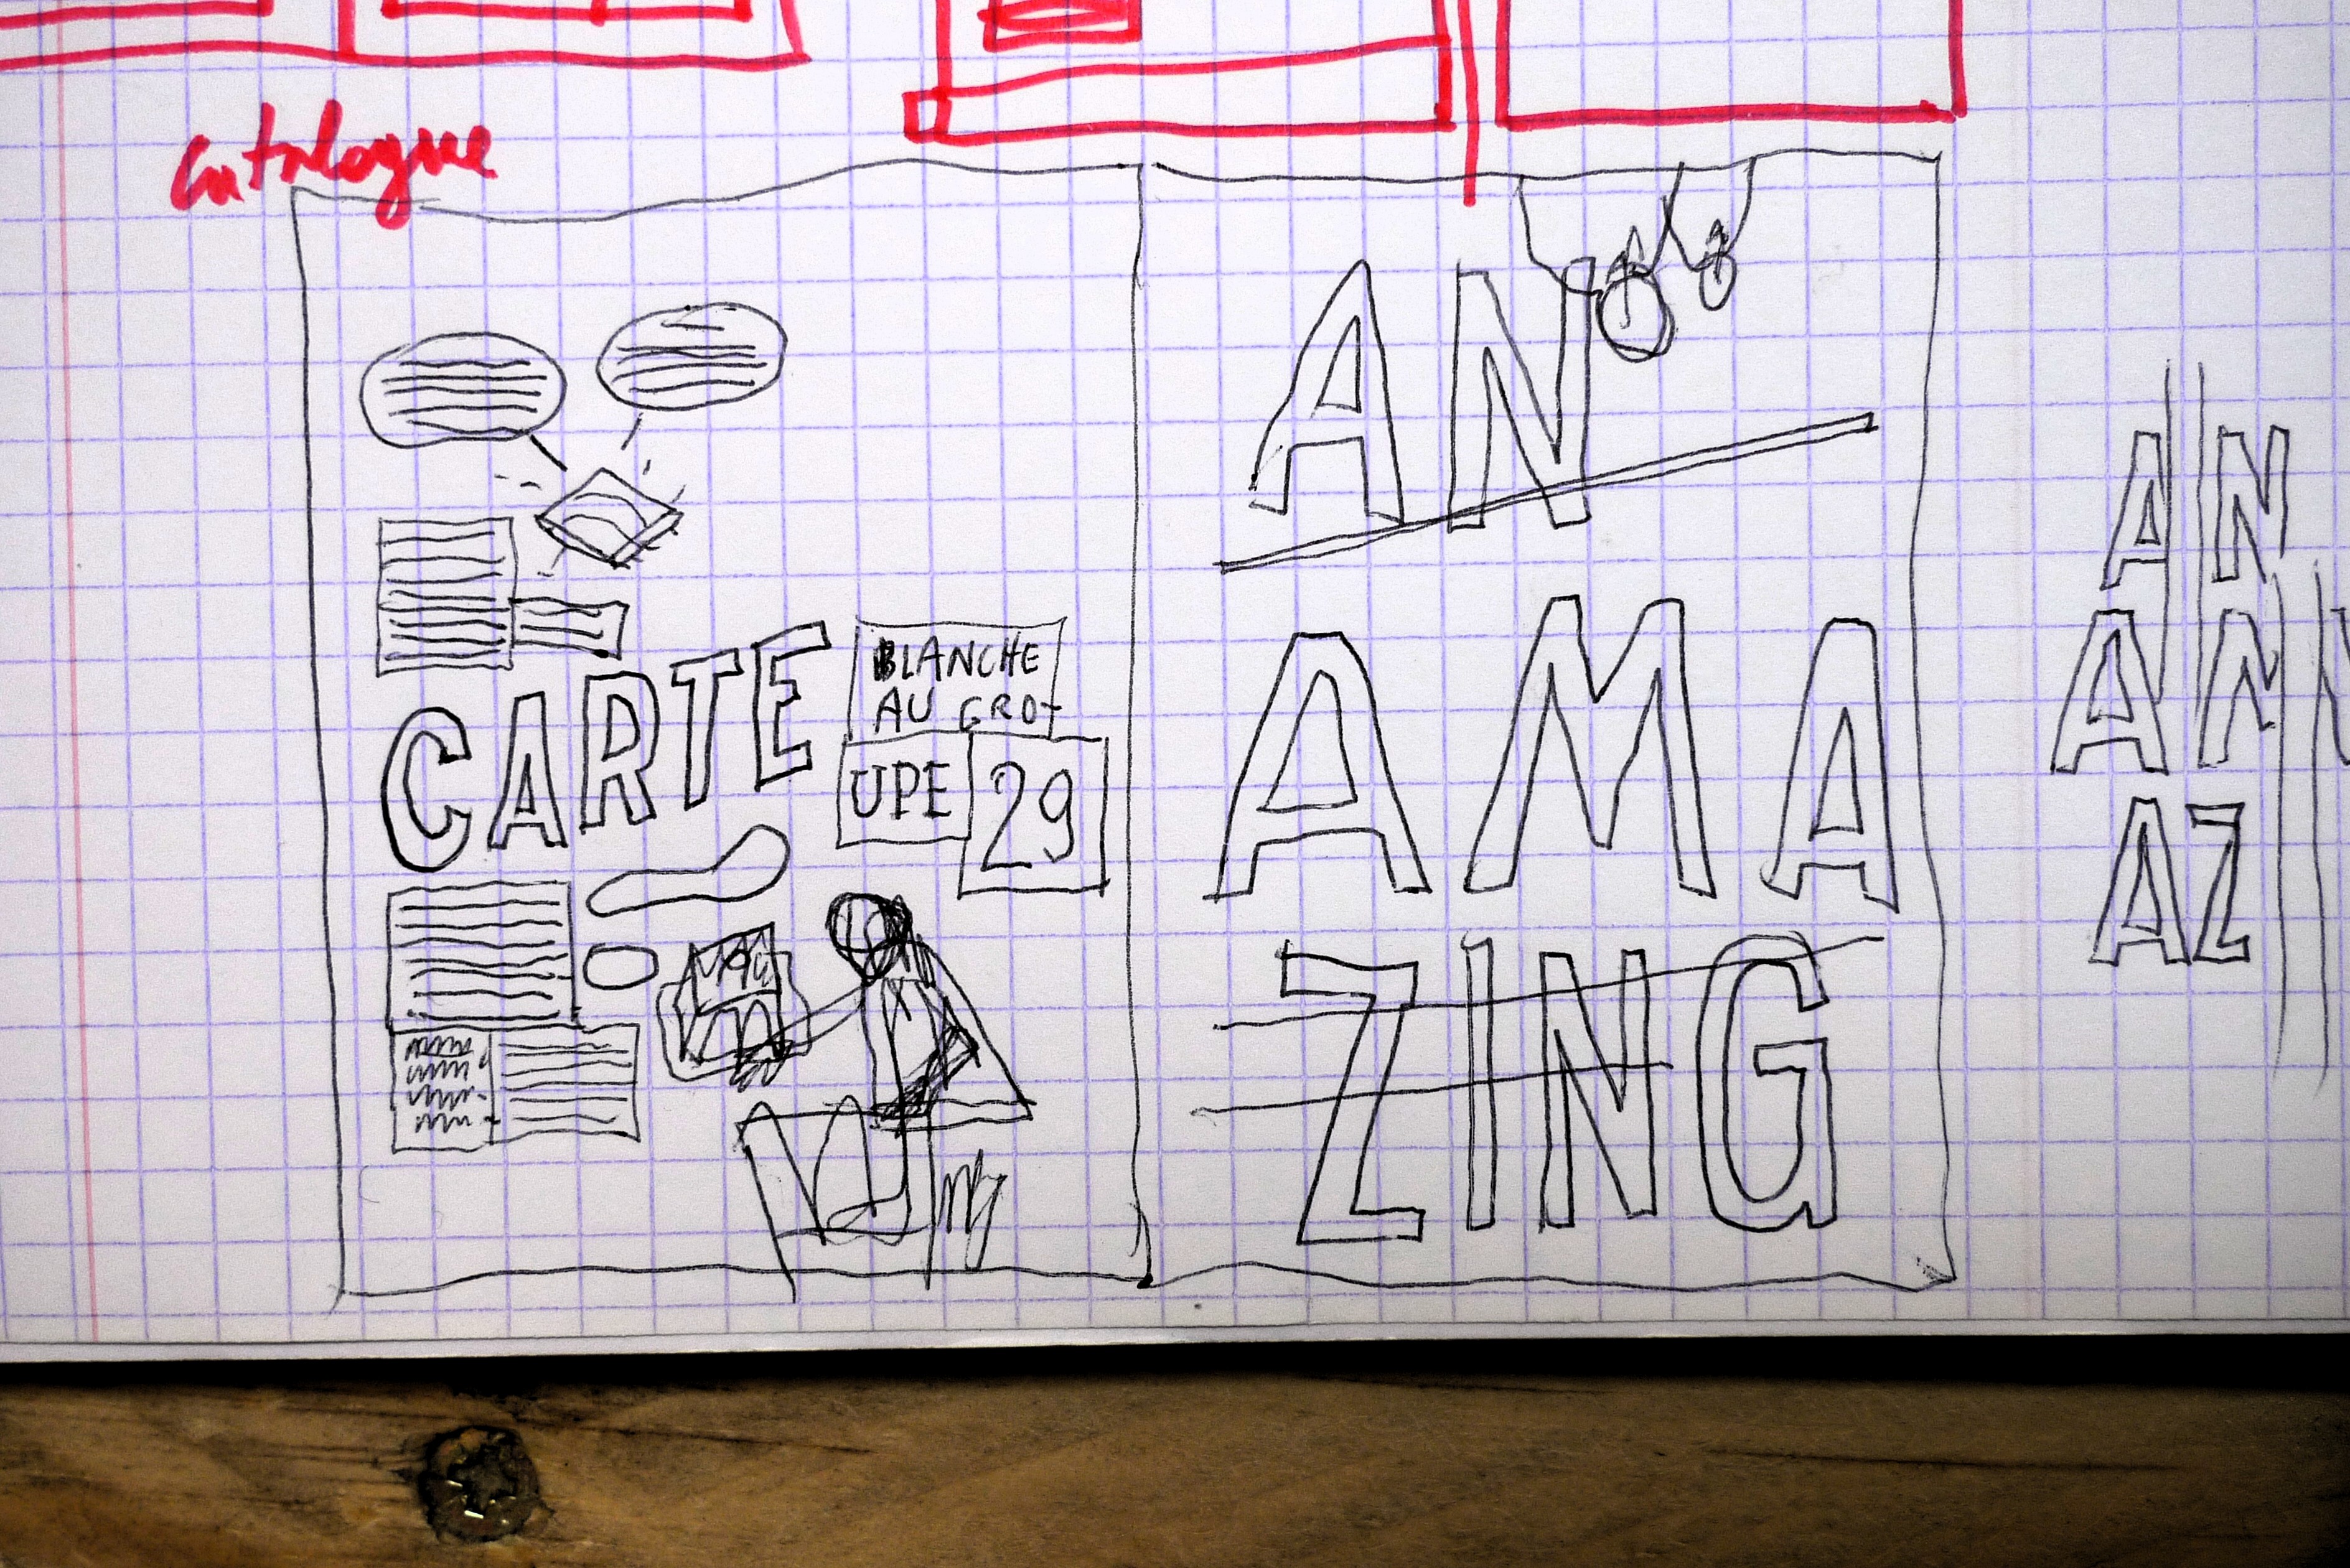 Catalogue
CARTE
BLANCHE
AU GRO-
UPE 29
AN
AMA
ZING
AN
AM
AZ